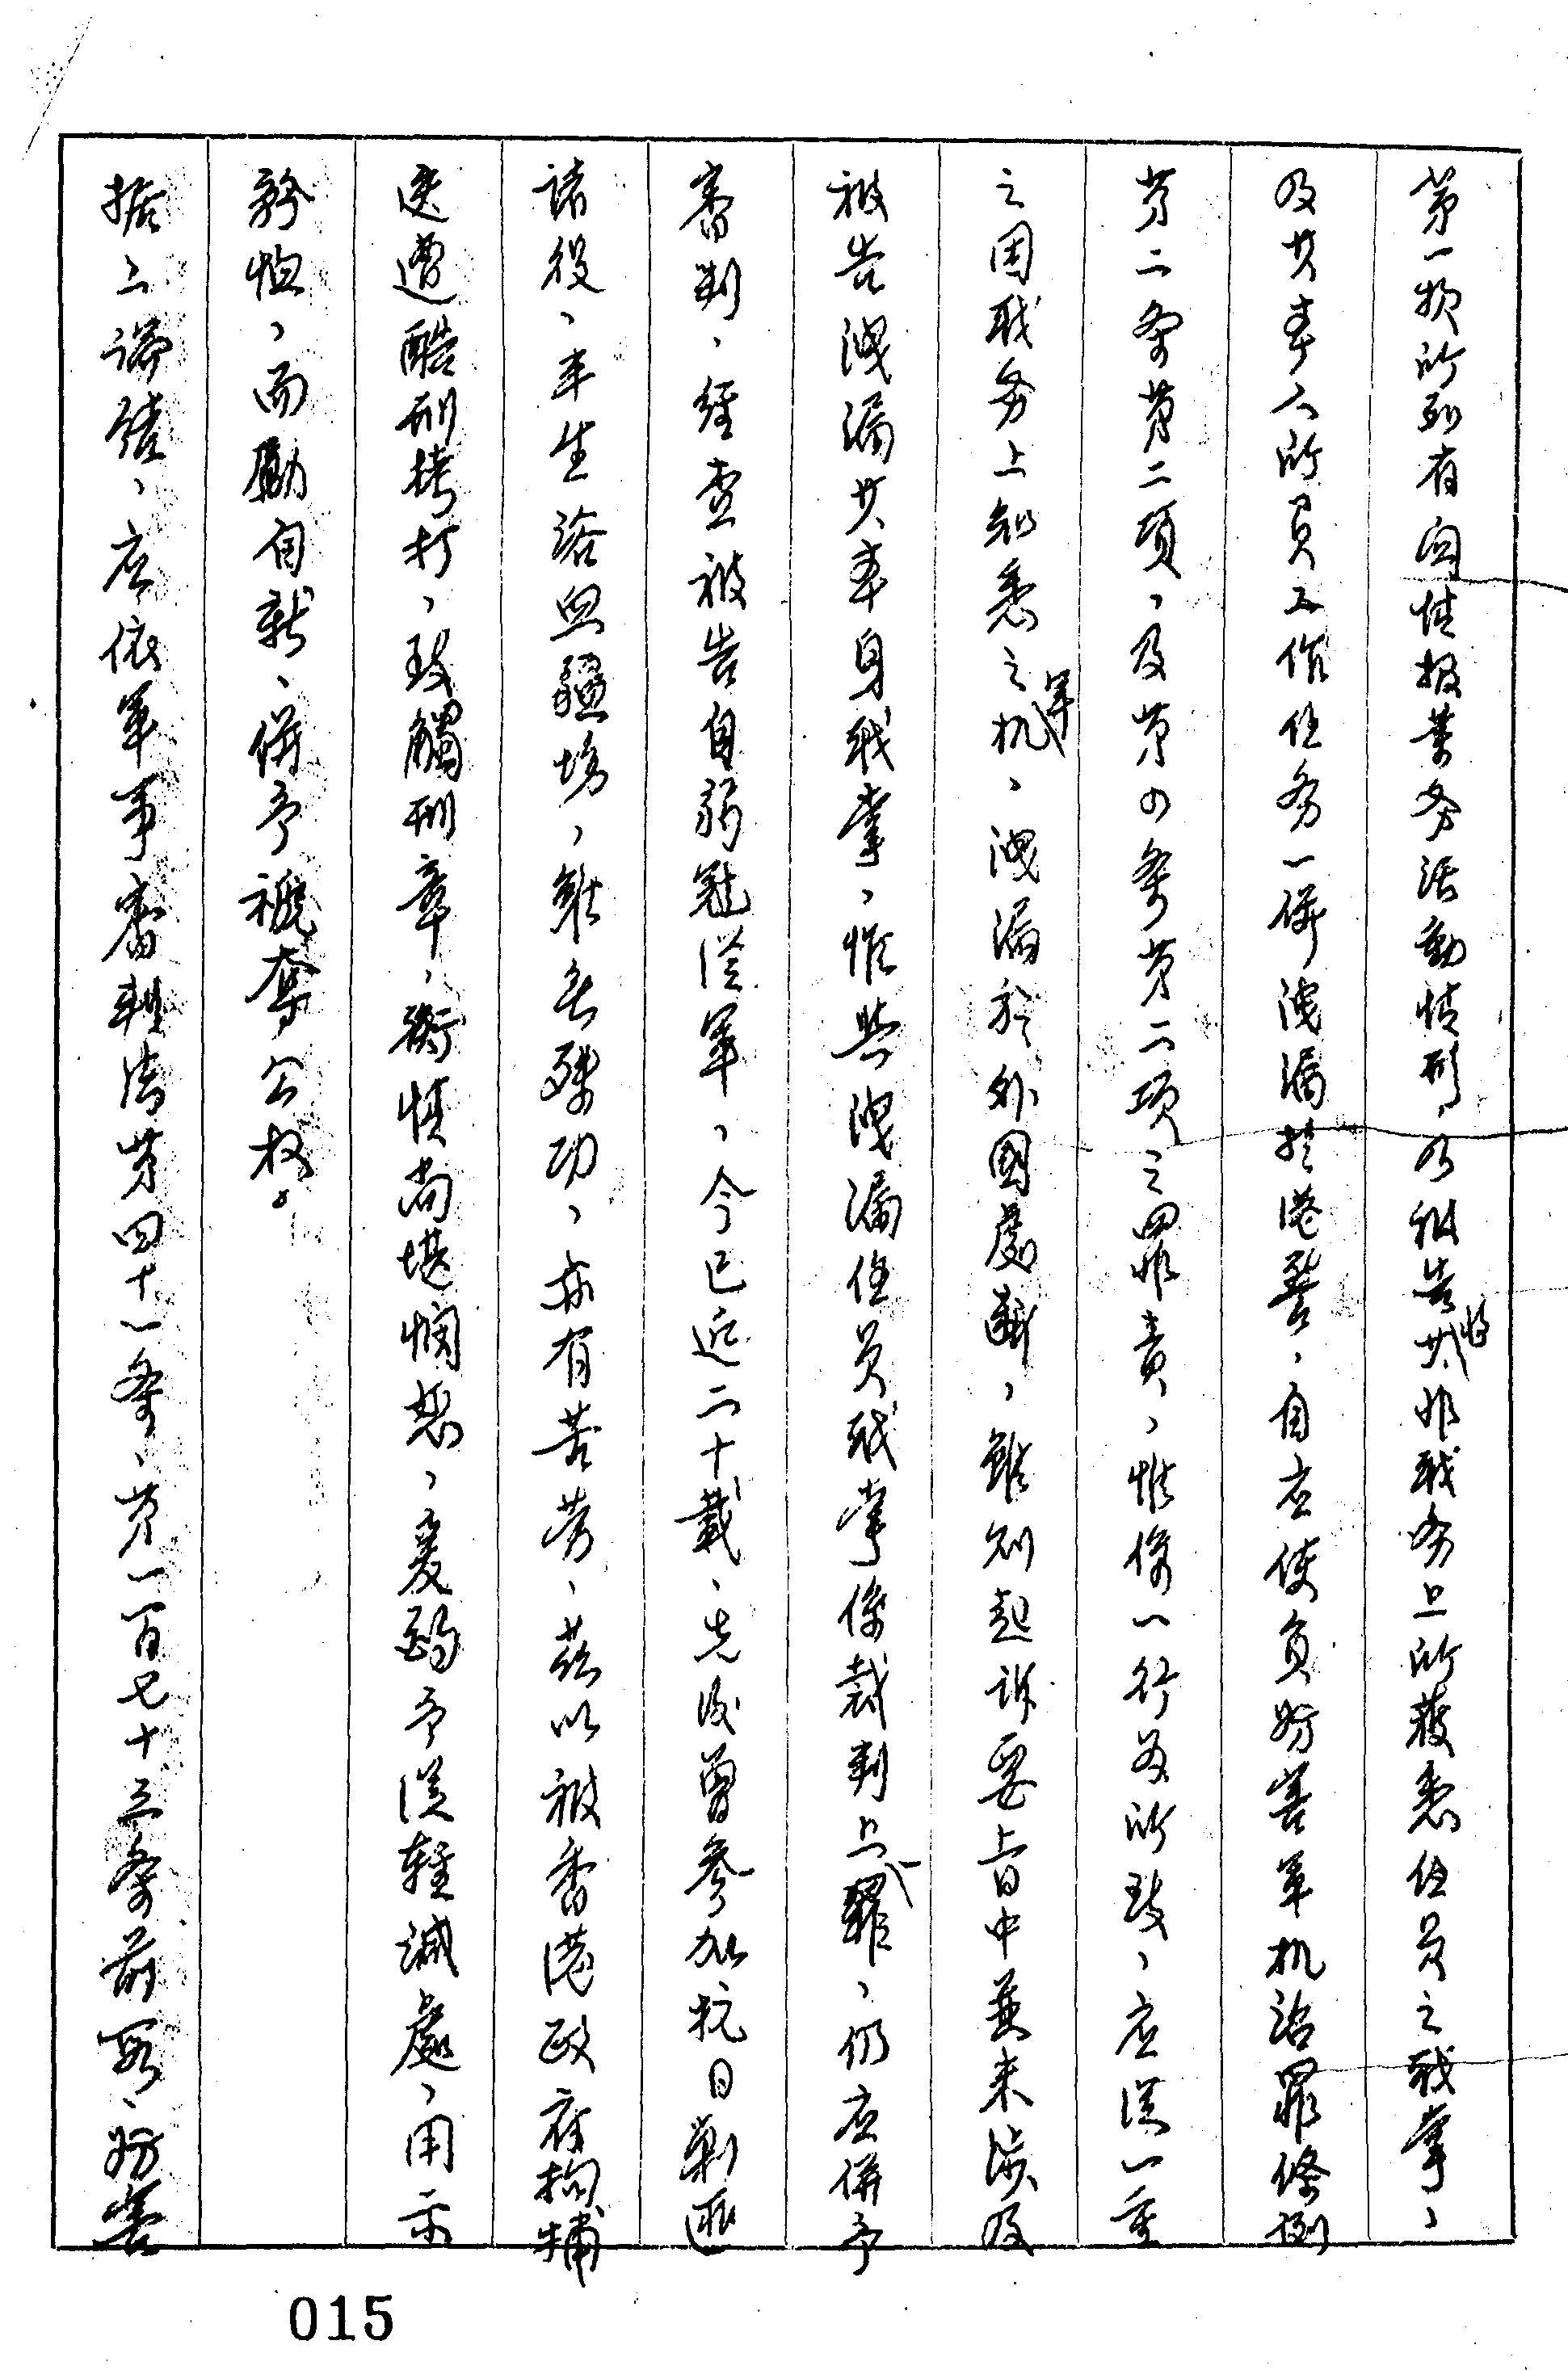 第一项所列有関情报業务活動情形，乃被告将其非职务上所获悉任员之职掌，
及其本人所负工作任务一併洩漏於港警，自应使负妨害军机治罪條例
第二条第二項，及第四条第二項之罪責，惟係一行为所致，应従一重
之因职务上知悉之军机，洩漏於外国處斷，雖则起訴要旨中並未涉及
被告洩漏其本身职掌，惟與洩漏任员职掌係裁判上一罪，仍应併予
審判，经查被告自弱冠従军，今已近二十載，先後曾参加抗日剿匪
諸役，半生浴血疆場，雖無殊功，亦有苦劳，兹以被香港政府拘捕
迭遭酷刑拷打，致觸刑章，衡情尚堪憫恕，爰酌予従輕減處，用示
矜恤，而勵自新，併予褫奪公权。
据上論结，应依军事審判法第四十一条，第一百七十三条前段，妨害
015